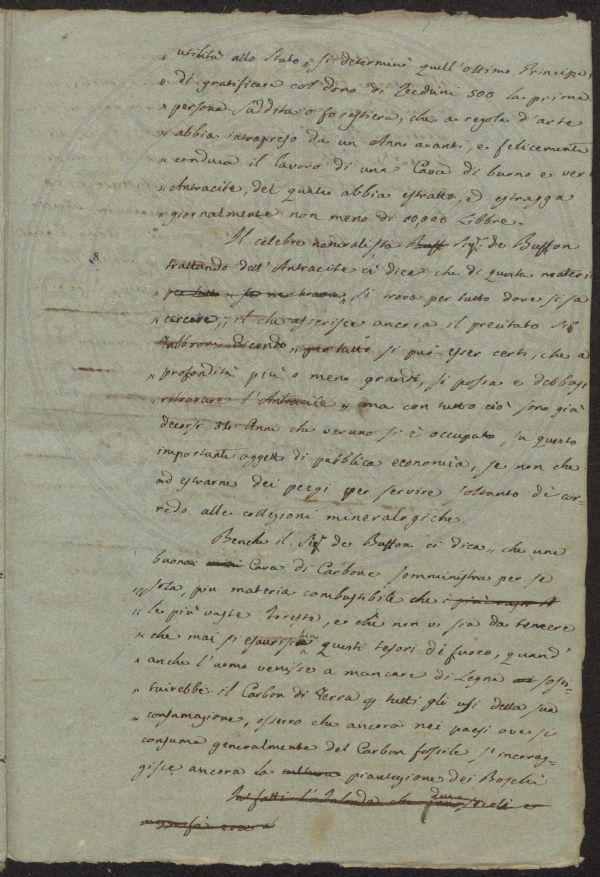 „ utilità allo Stato „ si determinò quell'ottimo Principe
„ di gratificare col dono di Zecchini 500 la prima
„ persona Suddita o forestiera, che a regola d'arte
„ abbia intrapreso da un Anno avanti, e felicemente
„ conduca il lavoro di una Cava di buono e vero
„ Antracite, del quale abbia estratto, ed estragga
„ giornalmente non meno di 10,000 Libbre.
Il celebre naturalista Buff Sigr de Buffon
8
trattando dell'Antracite ci dice che di questa materia
„ per tutto „ se ne trova „ si trova per tutto dove si sa
„ cercare „ il che asserisce ancora il precitato Sigr
dicendo „ per tutto si può esser certi, che a
„ profondità più o meno grandi, si possa e debbasi
„ ritrovare l'Antracite „ ma con tutto ciò sono già
decorsi 34 Anni che veruno si è occupato, su questo
importante oggetto di pubblica economia, se non che
ad estrarne dei pezzi per servire soltanto di cor-
redo alle collezioni mineralogiche
Benche il Sigr de Buffon ci dica „ che una
buona Cava di Carbone somministra per se
„ sola, piu materia combustibile che i più vasti
„ le più vaste foreste, e che non vi sia da temere
„ che mai si esauriscano questi tesori di fuoco, quand'
„ anche l'uomo venisse a mancare di Legna sosti-
„ tuirebbe il Carbon di Terra a tutti gli usi della sua
„ consumazione, osservo che ancora nei paesi ove si
consuma generalmente del Carbon fossile s'incorag-
gisce ancora la cultura piantazione dei Boschi
Infatti l'Olanda che